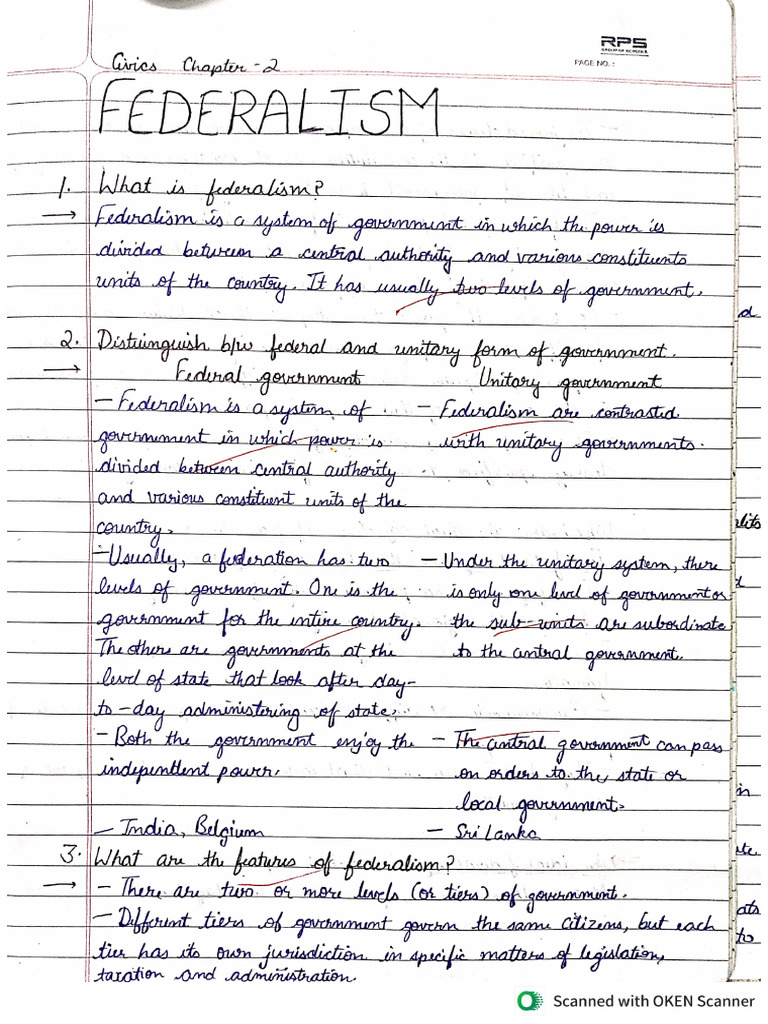 RPS
GROUP OF SCHOOLS
PAGE NO. :
Civics Chapter-2
FEDERALISM
1. What is federalism?
→ Federalism is a system of government in which the power is
divided between a central authority and various constituents
units of the country. It has usually two levels of government.
2. Distinguish b/w federal and unitary form of government.
→ Federal government Unitary government
- Federalism is a system of - Federalism are contrasted
government in which power is with unitary governments.
divided between central authority
and various constituent units of the
country.
- Usually, a federation has two - Under the unitary system, there
levels of government. One is the is only one level of government or
government for the entire country. the sub-units are subordinate
The others are governments at the to the central government.
level of state that look after day-
to-day administering of state.
- Both the government enjoy the - The central government can pass
independent power. on orders to the state or
local government.
- India, Belgium - Sri Lanka
3. What are the features of federalism?
→ - There are two or more levels (or tiers) of government.
- Different tiers of government govern the same citizens, but each
tier has its own jurisdiction in specific matters of legislation,
taxation and administration.
Scanned with OKEN Scanner